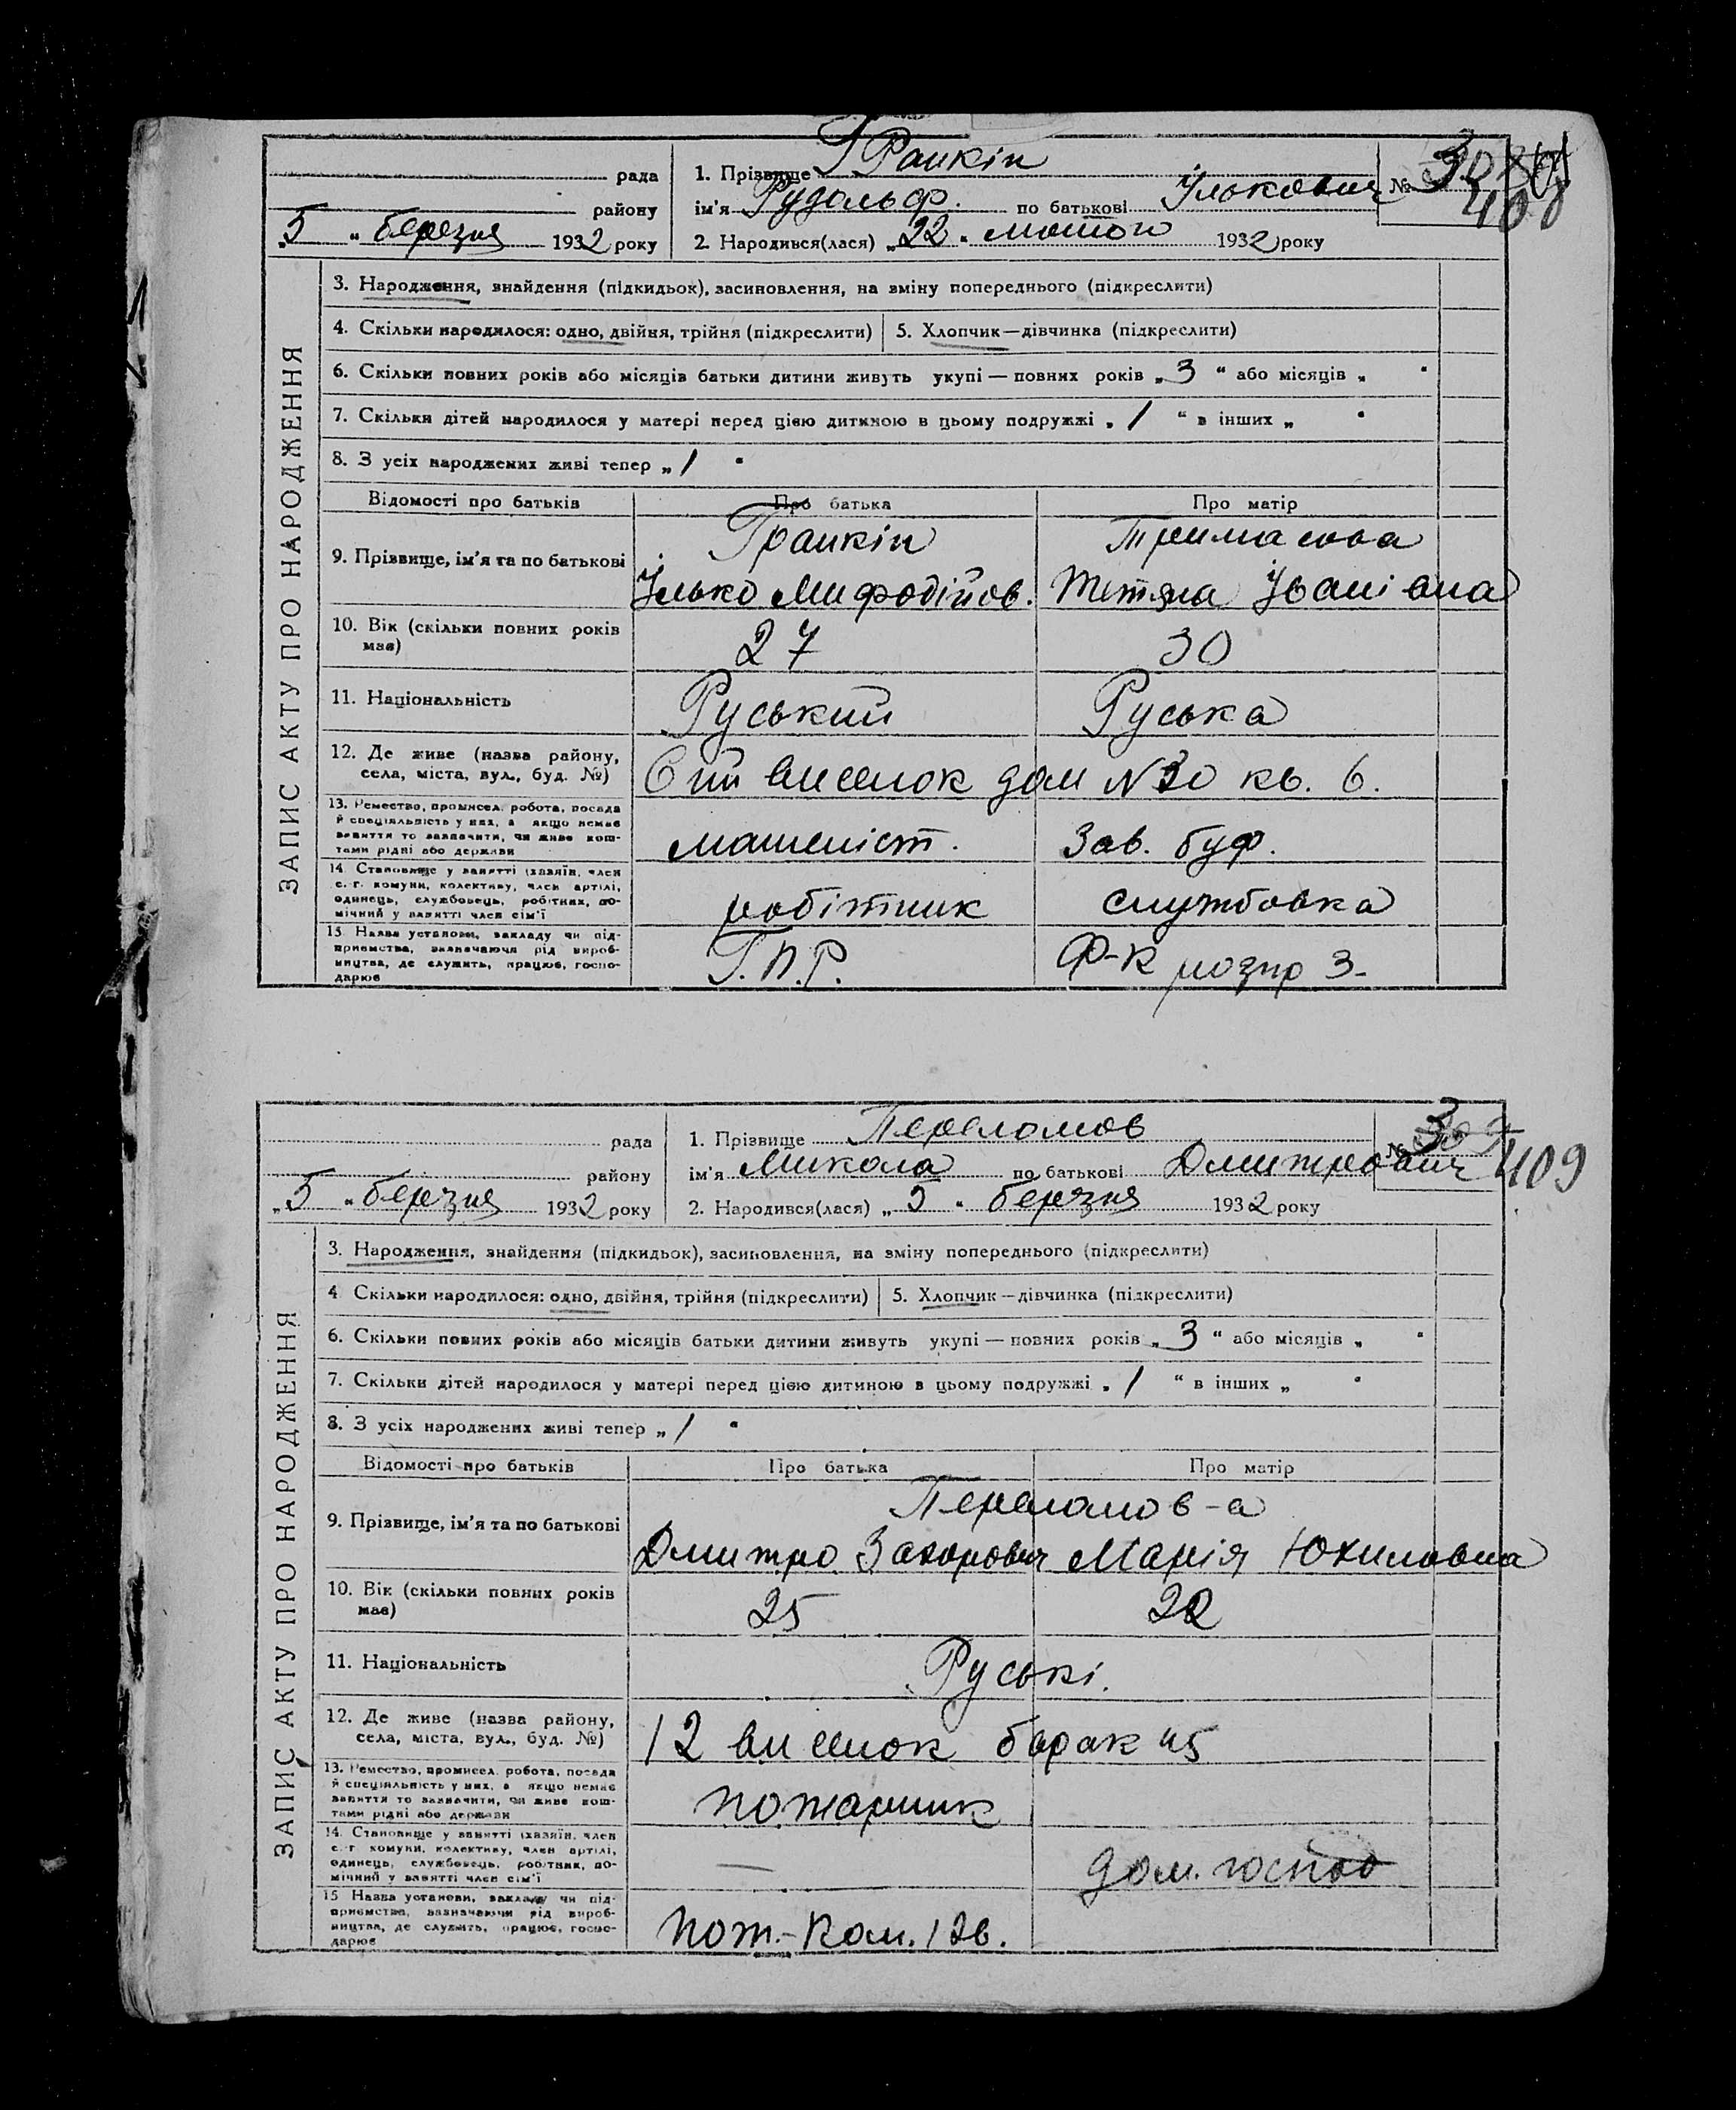 рада
району
„5 “ березня 1932 року
1. Прізвище Гранкін
ім'я Рудольф. по батькові Ількович
2. Народився(лася) „22 “ лютого 1932 року
№ 408
ЗАПИС АКТУ ПРО НАРОДЖЕННЯ
3. Народження, знайдення (підкидьок), засиновлення, на зміну попереднього (підкреслити)
4. Скільки народилося: одно, двійня, трійня (підкреслити) 5. Хлопчик—дівчинка (підкреслити)
6. Скільки повних років або місяців батьки дитини живуть укупі — повних років „ 3 “ або місяців „ “
7. Скільки дітей народилося у матері перед цією дитиною в цьому подружжі „ 1 “ в інших „ “
8. З усіх народжених живі тепер „ 1 “
Відомості про батьків Про батька Про матір
9. Прізвище, ім'я та по батькові
Гранкін
Ілько Мифодійов.
Тетяна Іванівна
10. Вік (скільки повних років має) 27 30
11. Національність Руський Руська
12. Де живе (назва району, села, міста, вул., буд. №) виселок дом № 30 кв. 6.
13. Ремество, промисел, робота, посада й спеціяльність у них, а якщо немає заняття то зазначити, чи живе коштами рідні або держави
машеніст. Зав. буф.
14. Становище у занятті (хазяїн, член с.-г. комуни, колективу, член артілі, одинець, службовець, робітник, помічний у занятті член сім'ї
робітник службовка
15. Назва установи, закладу чи підприємства, зазначаючи рід виробництва, де служить, працює, господарює
Г.П.Р. Ф-к розпр 3-
рада
району
„5 “ березня 1932 року
1. Прізвище Переломов
ім'я Микола по батькові Дмитрович
2. Народився(лася) „ 5 “ березня 1932 року
№ 409
ЗАПИС АКТУ ПРО НАРОДЖЕННЯ
3. Народження, знайдення (підкидьок), засиновлення, на зміну попереднього (підкреслити)
4 Скільки народилося: одно, двійня, трійня (підкреслити) 5. Хлопчик—дівчинка (підкреслити)
6. Скільки повних років або місяців батьки дитини живуть укупі — повних років „ 3 “ або місяців „ “
7. Скільки дітей народилося у матері перед цією дитиною в цьому подружжі „ 1 “ в інших „ “
8. З усіх народжених живі тепер „ 1 “
Відомості про батьків Про батька Про матір
9. Прізвище, ім'я та по батькові
Переломов-а
Дмитро Захорович Марія Юхиловна
10. Вік (скільки повних років має) 25 22
11. Національність Руські.
12. Де живе (назва району, села, міста, вул., буд. №) 12 виселок барак 45
13. Ремество, промисел, робота, посада й спеціяльність у них, а якщо немає заняття то зазначити, чи живе коштами рідні або держави
пожарник
14. Становище у занятті (хазяїн, член с.-г. комуни, колективу, член артілі, одинець, службовець, робітник, помічний у занятті член сім'ї
— дом. господ
15 Назва установи, закладу чи підприємства, зазначаючи рід виробництва, де служить, працює, господарює
Пож.-Ком. 12в.